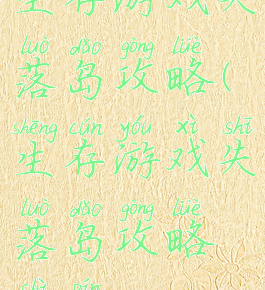 生存游戏失
luò dǎo gōng lüè
落岛攻略(
shēng cún yóu xì shī
生存游戏失
luò dǎo gōng lüè
落岛攻略